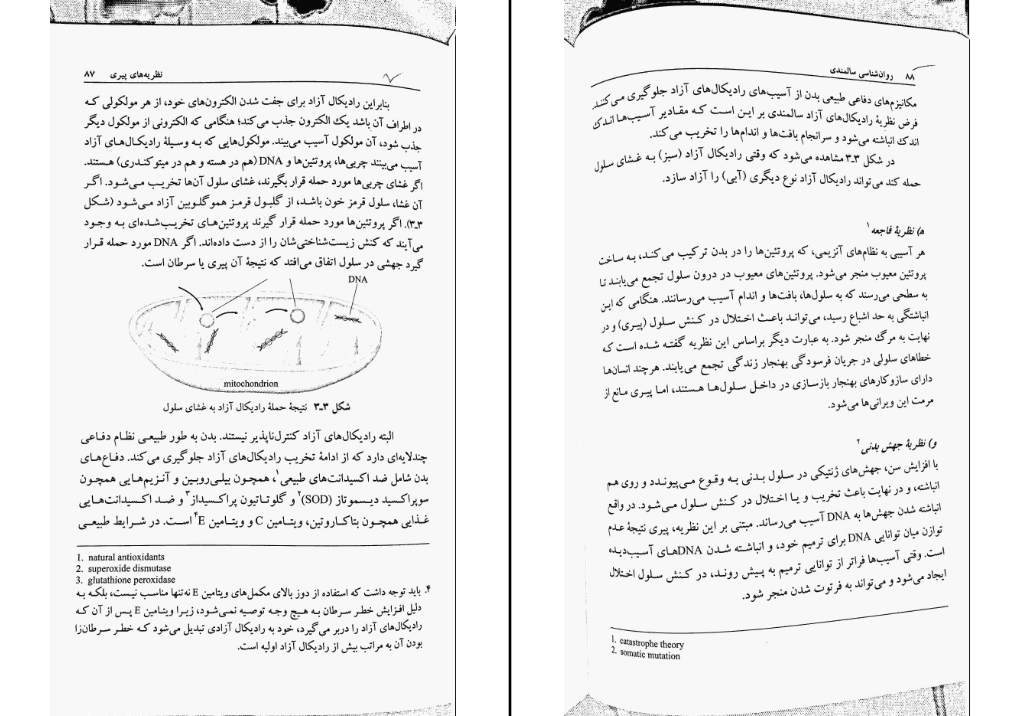 نظریه‌های پیری ۸۷
بنابراین رادیکال آزاد برای جفت شدن الکترون‌های خود، از هر مولکولی که
در اطراف آن باشد یک الکترون جذب می‌کند؛ هنگامی که الکترونی از مولکول دیگر
جذب شود، آن مولکول آسیب می‌بیند. مولکول‌هایی که به وسیلهٔ رادیکال‌های آزاد
آسیب می‌بینند چربی‌ها، پروتئین‌ها و DNA (هم در هسته و هم در میتوکندری) هستند.
اگر غشای چربی‌ها مورد حمله قرار بگیرند، غشای سلول آن‌ها تخریب می‌شود. اگر
آن غشا، سلول قرمز خون باشد، از گلبول قرمز هموگلوبین آزاد می‌شود (شکل
۳ـ۳). اگر پروتئین‌ها مورد حمله قرار گیرند پروتئین‌های تخریب‌شده‌ای به وجود
می‌آیند که کنش زیست‌شناختی‌شان را از دست داده‌اند. اگر DNA مورد حمله قرار
گیرد جهشی در سلول اتفاق می‌افتد که نتیجهٔ آن پیری یا سرطان است.
DNA
mitochondrion
شکل ۳ـ۳ نتیجهٔ حملهٔ رادیکال آزاد به غشای سلول
البته رادیکال‌های آزاد کنترل‌ناپذیر نیستند. بدن به طور طبیعی نظام دفاعی
چندلایه‌ای دارد که از ادامهٔ تخریب رادیکال‌های آزاد جلوگیری می‌کند. دفاع‌های
بدن شامل ضد اکسیدانت‌های طبیعی۱، همچون بیلی‌روبین و آنزیم‌هایی همچون
سوپراکسید دیسموتاز (SOD)۲ و گلوتاتیون پراکسیداز۳ و ضد اکسیدانت‌هایی
غذایی همچون بتاکاروتین، ویتامین C و ویتامین E۴ است. در شرایط طبیعی
1. natural antioxidants
2. superoxide dismutase
3. glutathione peroxidase
۴. باید توجه داشت که استفاده از دوز بالای مکمل‌های ویتامین E نه‌تنها مناسب نیست، بلکه به
دلیل افزایش خطر سرطان به هیچ وجه توصیه نمی‌شود، زیرا ویتامین E پس از آن که
رادیکال‌های آزاد را دربر می‌گیرد، خود به رادیکال آزادی تبدیل می‌شود که خطر سرطان‌زا
بودن آن به مراتب بیش از رادیکال آزاد اولیه است.
۸۸ روان‌شناسی سالمندی
مکانیزم‌های دفاعی طبیعی بدن از آسیب‌های رادیکال‌های آزاد جلوگیری می‌کنند.
فرض نظریهٔ رادیکال‌های آزاد سالمندی بر این است که مقادیر آسیب‌ها اندک
اندک انباشته می‌شود و سرانجام بافت‌ها و اندام‌ها را تخریب می‌کند.
در شکل ۳ـ۳ مشاهده می‌شود که وقتی رادیکال آزاد (سبز) به غشای سلول
حمله کند می‌تواند رادیکال آزاد نوع دیگری (آبی) را آزاد سازد.
ه) نظریهٔ فاجعه۱
هر آسیبی به نظام‌های آنزیمی، که پروتئین‌ها را در بدن ترکیب می‌کنند، به ساخت
پروتئین معیوب منجر می‌شود. پروتئین‌های معیوب در درون سلول تجمع می‌یابند تا
به سطحی می‌رسند که به سلول‌ها، بافت‌ها و اندام آسیب می‌رسانند. هنگامی که این
انباشتگی به حد اشباع رسید، می‌تواند باعث اختلال در کنش سلول (پیری) و در
نهایت به مرگ منجر شود. به عبارت دیگر براساس این نظریه گفته شده است که
خطاهای سلولی در جریان فرسودگی بهنجار زندگی تجمع می‌یابند. هرچند انسان‌ها
دارای سازوکارهای بهنجار بازسازی در داخل سلول‌ها هستند، اما پیری مانع از
مرمت این ویرانی‌ها می‌شود.
و) نظریهٔ جهش بدنی۲
با افزایش سن، جهش‌های ژنتیکی در سلول بدنی به وقوع می‌پیوندد و روی هم
انباشته، و در نهایت باعث تخریب و یا اختلال در کنش سلول می‌شود. در واقع
انباشته شدن جهش‌ها به DNA آسیب می‌رساند. مبتنی بر این نظریه، پیری نتیجهٔ عدم
توازن میان توانایی DNA برای ترمیم خود، و انباشته شدن DNAهای آسیب‌دیده
است. وقتی آسیب‌ها فراتر از توانایی ترمیم به پیش روند، در کنش سلول اختلال
ایجاد می‌شود و می‌تواند به فرتوت شدن منجر شود.
1. catastrophe theory
2. somatic mutation